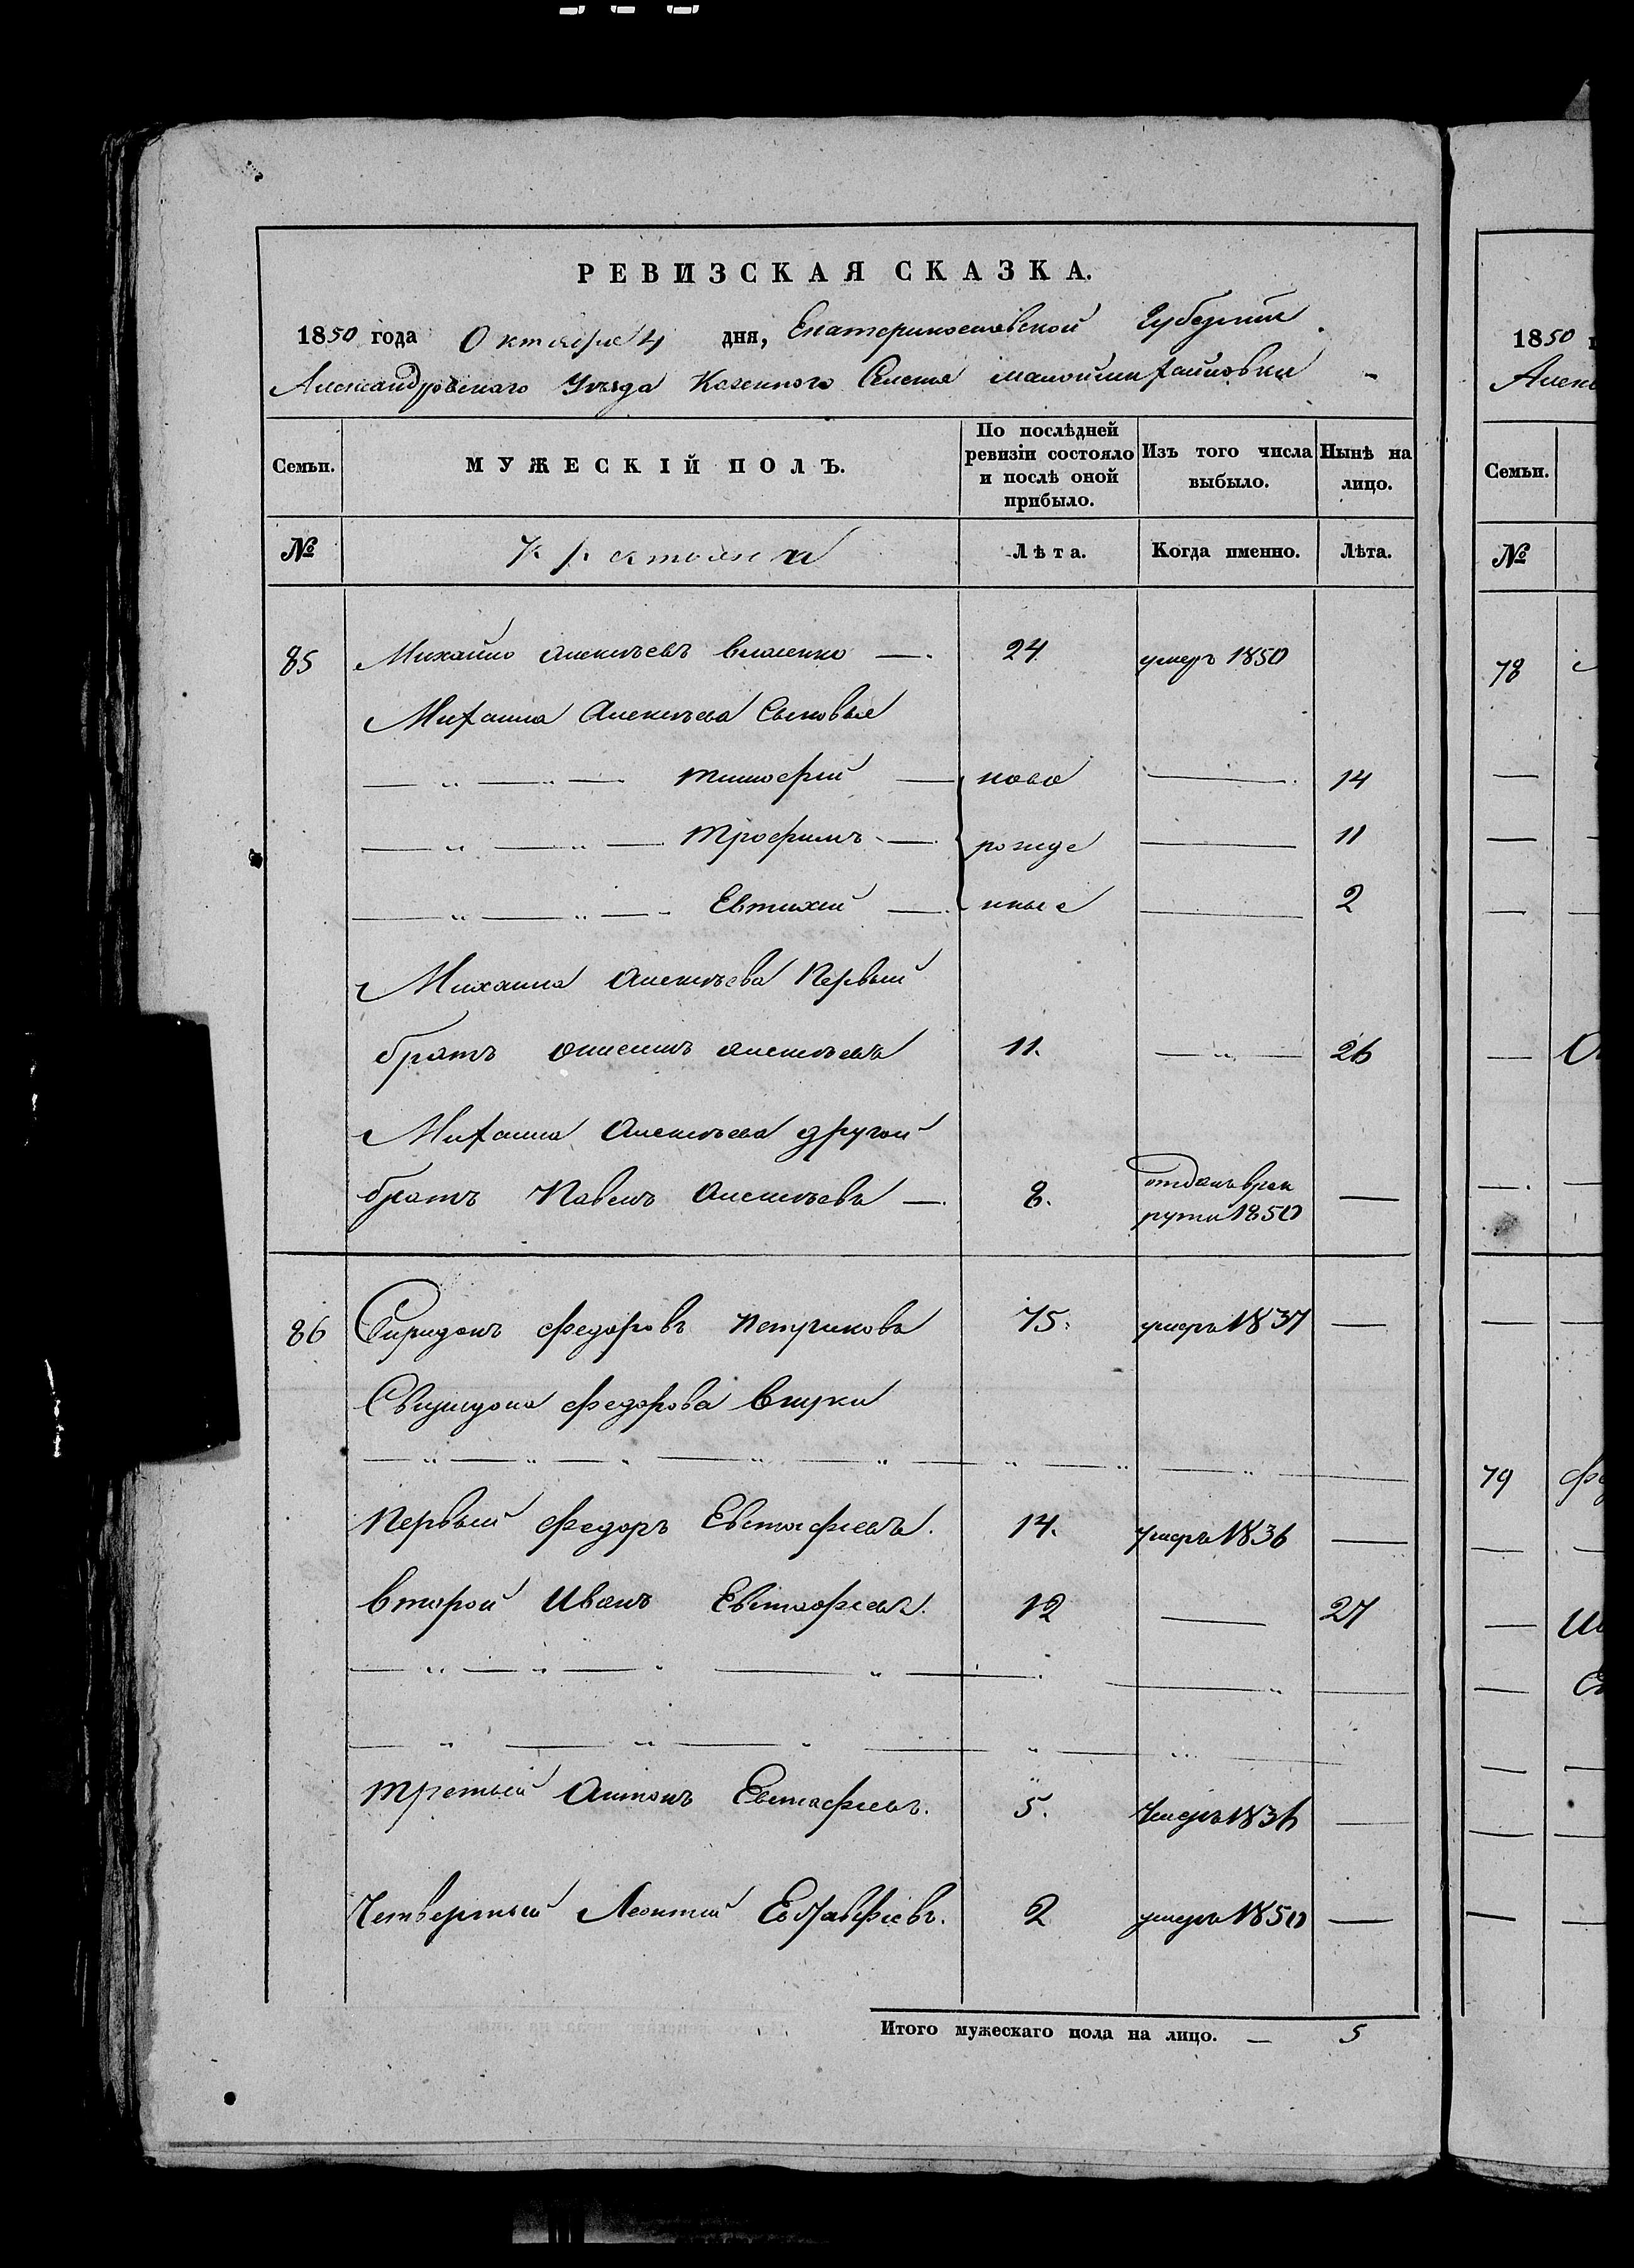 РЕВИЗСКАЯ СКАЗКА.
1850 года Октября 4 дня, Екатеринославской Губернии
Александровского Уѣзда Казенного Селения Маломихайловки
Семьи. МУЖЕСКІЙ ПОЛЪ. По послѣдней ревизіи состояло и послѣ оной прибыло. Изъ того числа выбыло. Нынѣ на лицо.
№ Крестьяне Лѣта. Когда именно. Лѣта.
85 Михайло Алексѣевъ Власенко 24 умеръ 1850
Михаила Алексѣева Сыновья
Тимофей ново 14
Трофимъ рожде 11
Евтихей нные 2
Михаила Алексѣева Первый
братъ Анисимъ Алексѣевъ 11. 26
Михаила Алексѣева другой
братъ Павелъ Алексѣевъ 8. отданъ врек
рути 1850
86 Свиридонъ Федоровъ Петриковъ 75. умеръ 1837
Свиридона Федорова внуки
Первый Федоръ Евстафіевъ. 14. умеръ 1836
второй Иванъ Евстафіевъ. 12 27
третьй Антонъ Евстафіевъ. 5. Умеръ 1836
Четвертый Леонтій Евстафіевъ. 2 умеръ 1850
Итого мужескаго пола на лицо. — 5
1850
Алек
Семьи.
№
78
79